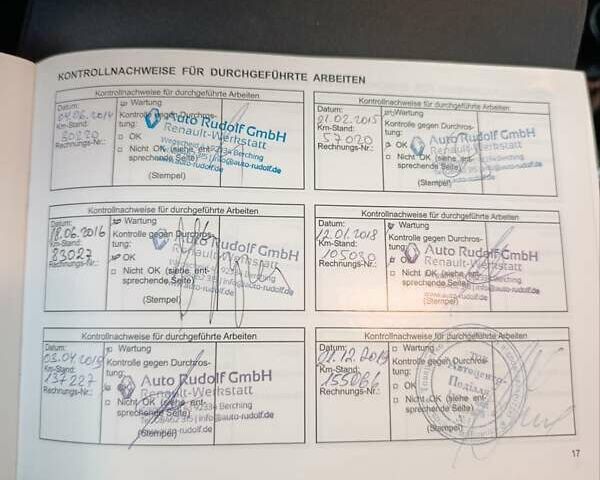 KONTROLLNACHWEISE FÜR DURCHGEFÜHRTE ARBEITEN
Kontrollnachweise für durchgeführte Arbeiten
Datum:
04.06.2014
Km-Stand:
50220
Rechnungs-Nr.:
Wartung
Kontrolle gegen Durchros-
tung:
OK
Nicht OK (siehe ent-
sprechende Seite)
(Stempel)
Auto Rudolf GmbH
Renault-Werkstatt
92334 Berching
info@auto-rudolf.de
Kontrollnachweise für durchgeführte Arbeiten
Datum:
01.02.2015
Km-Stand:
57020
Rechnungs-Nr.:
Wartung
Kontrolle gegen Durchros-
tung:
OK
Nicht OK (siehe ent-
sprechende Seite)
(Stempel)
Auto Rudolf GmbH
Renault-Werkstatt
92334 Berching
info@auto-rudolf.de
Kontrollnachweise für durchgeführte Arbeiten
Datum:
18.06.2016
Km-Stand:
83027
Rechnungs-Nr.:
Wartung
Kontrolle gegen Durchros-
tung:
OK
Nicht OK (siehe ent-
sprechende Seite)
(Stempel)
Auto Rudolf GmbH
Renault-Werkstatt
92334 Berching
info@auto-rudolf.de
Kontrollnachweise für durchgeführte Arbeiten
Datum:
12.01.2018
Km-Stand:
105030
Rechnungs-Nr.:
Wartung
Kontrolle gegen Durchros-
tung:
OK
Nicht OK (siehe ent-
sprechende Seite)
(Stempel)
Auto Rudolf GmbH
Renault-Werkstatt
92334 Berching
info@auto-rudolf.de
Kontrollnachweise für durchgeführte Arbeiten
Datum:
03.04.2019
Km-Stand:
137227
Rechnungs-Nr.:
Wartung
Kontrolle gegen Durchros-
tung:
OK
Nicht OK (siehe ent-
sprechende Seite)
(Stempel)
Auto Rudolf GmbH
Renault-Werkstatt
92334 Berching
info@auto-rudolf.de
Kontrollnachweise für durchgeführte Arbeiten
Datum:
Km-Stand:
155066
Rechnungs-Nr.:
Wartung
Kontrolle gegen Durchros-
tung:
OK
Nicht OK (siehe ent-
sprechende Seite)
(Stempel)
17